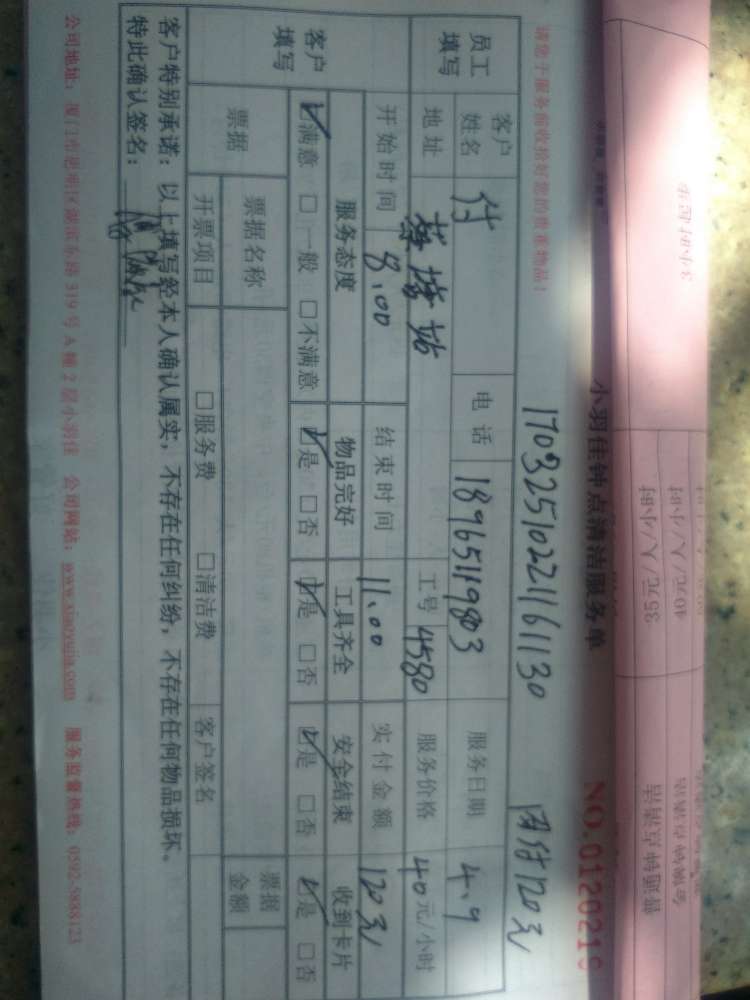 小羽佳钟点清洁服务单 NO.0120216
170325102211161130 团付120元
请您于服务前收拾好您的贵重物品！
员工填写 客户姓名 付 电话 18965119803 服务日期 4.9
地址 蔡塘站 工号 4580 服务价格 40元/小时
开始时间 8.00 结束时间 11.00 实付金额 120元
客户填写 服务态度 物品完好 工具齐全 安全结束 收到卡片
☑满意 □一般 □不满意 ☑是 □否 ☑是 □否 ☑是 □否 ☑是 □否
票据 票据名称 票据金额
开票项目 □服务费 □清洁费 客户签名
客户特别承诺：以上填写经本人确认属实，不存在任何纠纷，不存在任何物品损坏。
特此确认签名：
公司地址：厦门市思明区湖滨东路319号A幢2层小羽佳 公司网站：www.xiaoyujia.com 服务监督热线：0592-5888123
40元/人/小时
35元/人/小时